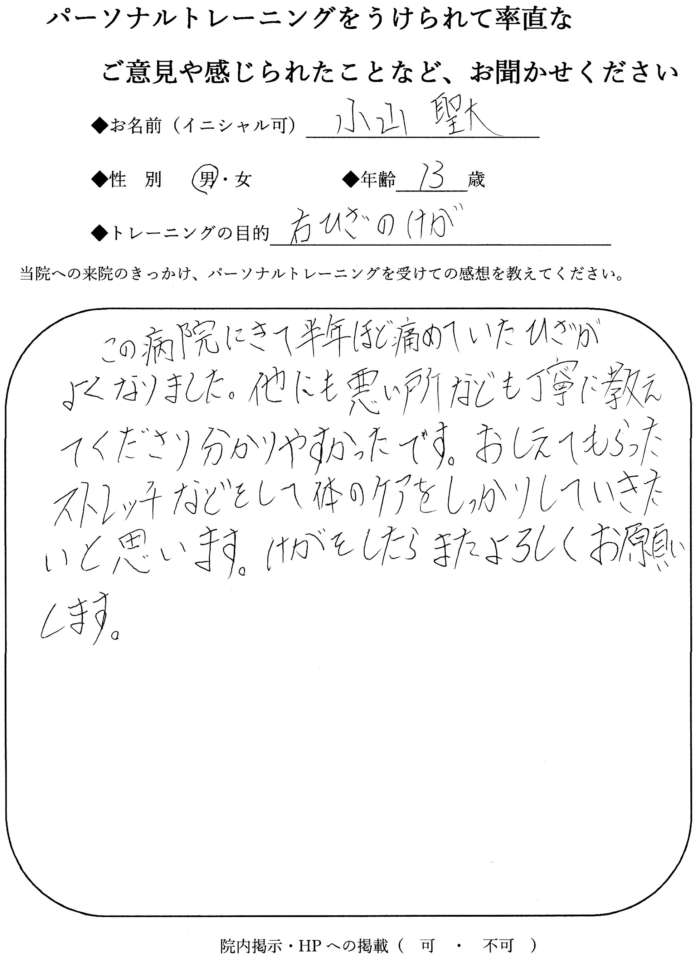 パーソナルトレーニングをうけられて率直な
ご意見や感じられたことなど、お聞かせください
◆お名前（イニシャル可） 小山 聖大
◆性 別 男・女 ◆年齢 13 歳
◆トレーニングの目的 右ひざのけが
当院への来院のきっかけ、パーソナルトレーニングを受けての感想を教えてください。
この病院にきて半年ほど痛めていたひざが
よくなりました。他にも悪い所なども丁寧に教え
てくださり分かりやすかったです。おしえてもらった
ストレッチなどをして体のケアをしっかりしていきた
いと思います。けがをしたらまたよろしくお願い
します。
院内掲示・HPへの掲載（ 可 ・ 不可 ）